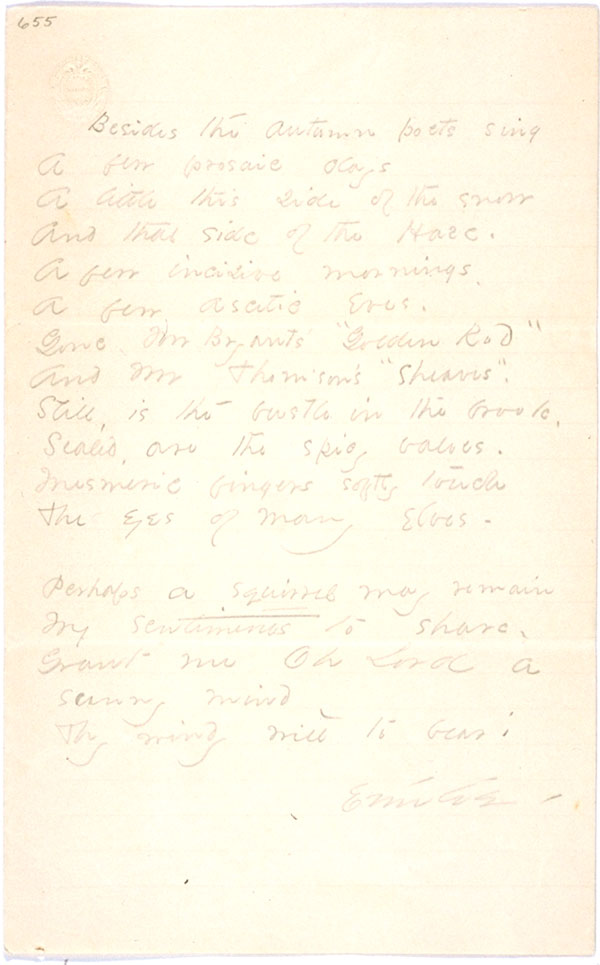 655
Besides the Autumn poets sing
A few prosaic days
A little this side of the snow
And that side of the Haze.
A few incisive mornings.
A few ascetic Eves.
Gone Mr Bryant's "Golden Rod"
And Mr Thomson's "Sheaves".
Still, is the bustle in the brook.
Sealed, are the spicy valves.
Mesmeric fingers softly touch
The Eyes of many Elves.
Perhaps a squirrel may remain
My sentiments to share.
Grant me Oh Lord a
sunny mind
Thy windy will to bear!
Emily